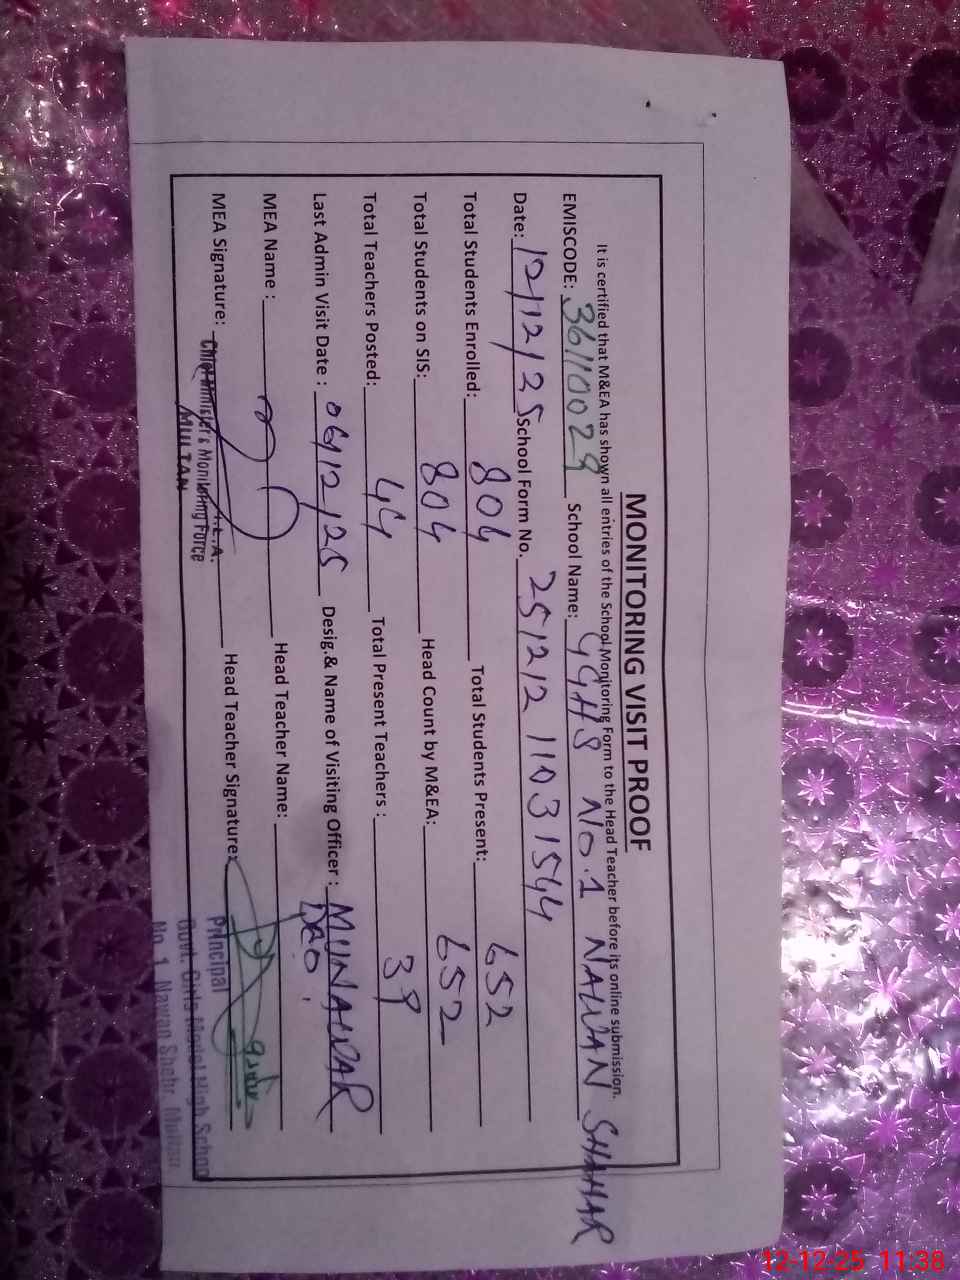 MONITORING VISIT PROOF
It is certified that M&EA has shown all entries of the School Monitoring Form to the Head Teacher before its online submission.
EMISCODE: 36110029 School Name: GGHS NO.1 NAWAN SHAHAR
Date: 12/12/25 School Form No. 25121211031544
Total Students Enrolled: 804 Total Students Present: 652
Total Students on SIS: 804 Head Count by M&EA: 652
Total Teachers Posted: 44 Total Present Teachers : 39
Last Admin Visit Date : 06/12/25 Desig.& Name of Visiting Officer : MUNAWAR
DEO
MEA Name : Head Teacher Name:
MEA Signature: Head Teacher Signature:
M.E.A.
Chief Minister's Monitoring Force
MULTAN
Principal
Govt. Girls Model High School
No. 1, Nawan Shehr, Multan
12-12-25 11:38